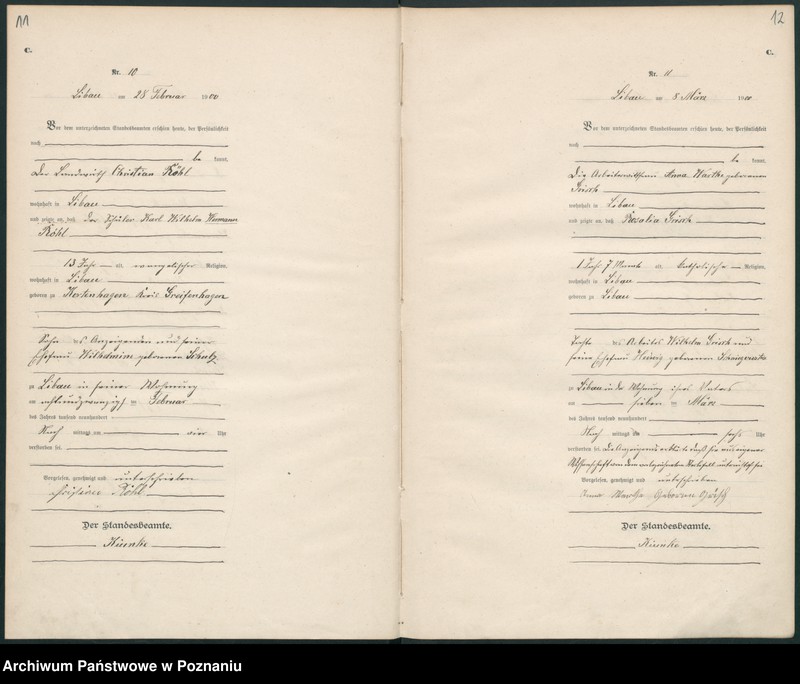 11
C.
Nr. 10
Libau am 28 Februar 1900
Vor dem unterzeichneten Standesbeamten erschien heute, der Persönlichkeit
nach
be kannt,
der Landwirth Christian Röhl
wohnhaft in Libau
und zeigte an, daß der Schüler Karl Wilhelm Hermann
Röhl
13 Jahr alt, evangelischer Religion,
wohnhaft in Libau
geboren zu Kortenhagen Kreis Greifenhagen
Sohn des Anzeigenden und seiner
Ehefrau Wilhelmine geborenen Schulz
zu Libau in seiner Wohnung
am achtundzwanzigsten Februar
des Jahres tausend neunhundert
Nach mittags um vier Uhr
verstorben sei.
Vorgelesen, genehmigt und unterschrieben
Christian Röhl
Der Standesbeamte.
12
C.
Nr. 11
Libau am 8 März 1900
Vor dem unterzeichneten Standesbeamten erschien heute, der Persönlichkeit
nach
be kannt,
die Arbeiterwittwe Anna geborenen
wohnhaft in Libau
und zeigte an, daß Rosalia
1 Jahr 7 Monat alt, katholischer Religion,
wohnhaft in Libau
geboren zu Libau
Tochter des Arbeiters Wilhelm und
seiner Ehefrau geborenen
zu Libau in der Wohnung ihres Vaters
am sieben März
des Jahres tausend neunhundert
Nach mittags um sechs Uhr
verstorben sei. Die Anzeigende erklärte daß sie aus eigener
Wissenschaft von dem Sterbefall unterrichtet sei
Vorgelesen, genehmigt und unterschrieben
Anna geboren
Der Standesbeamte.
Archiwum Państwowe w Poznaniu